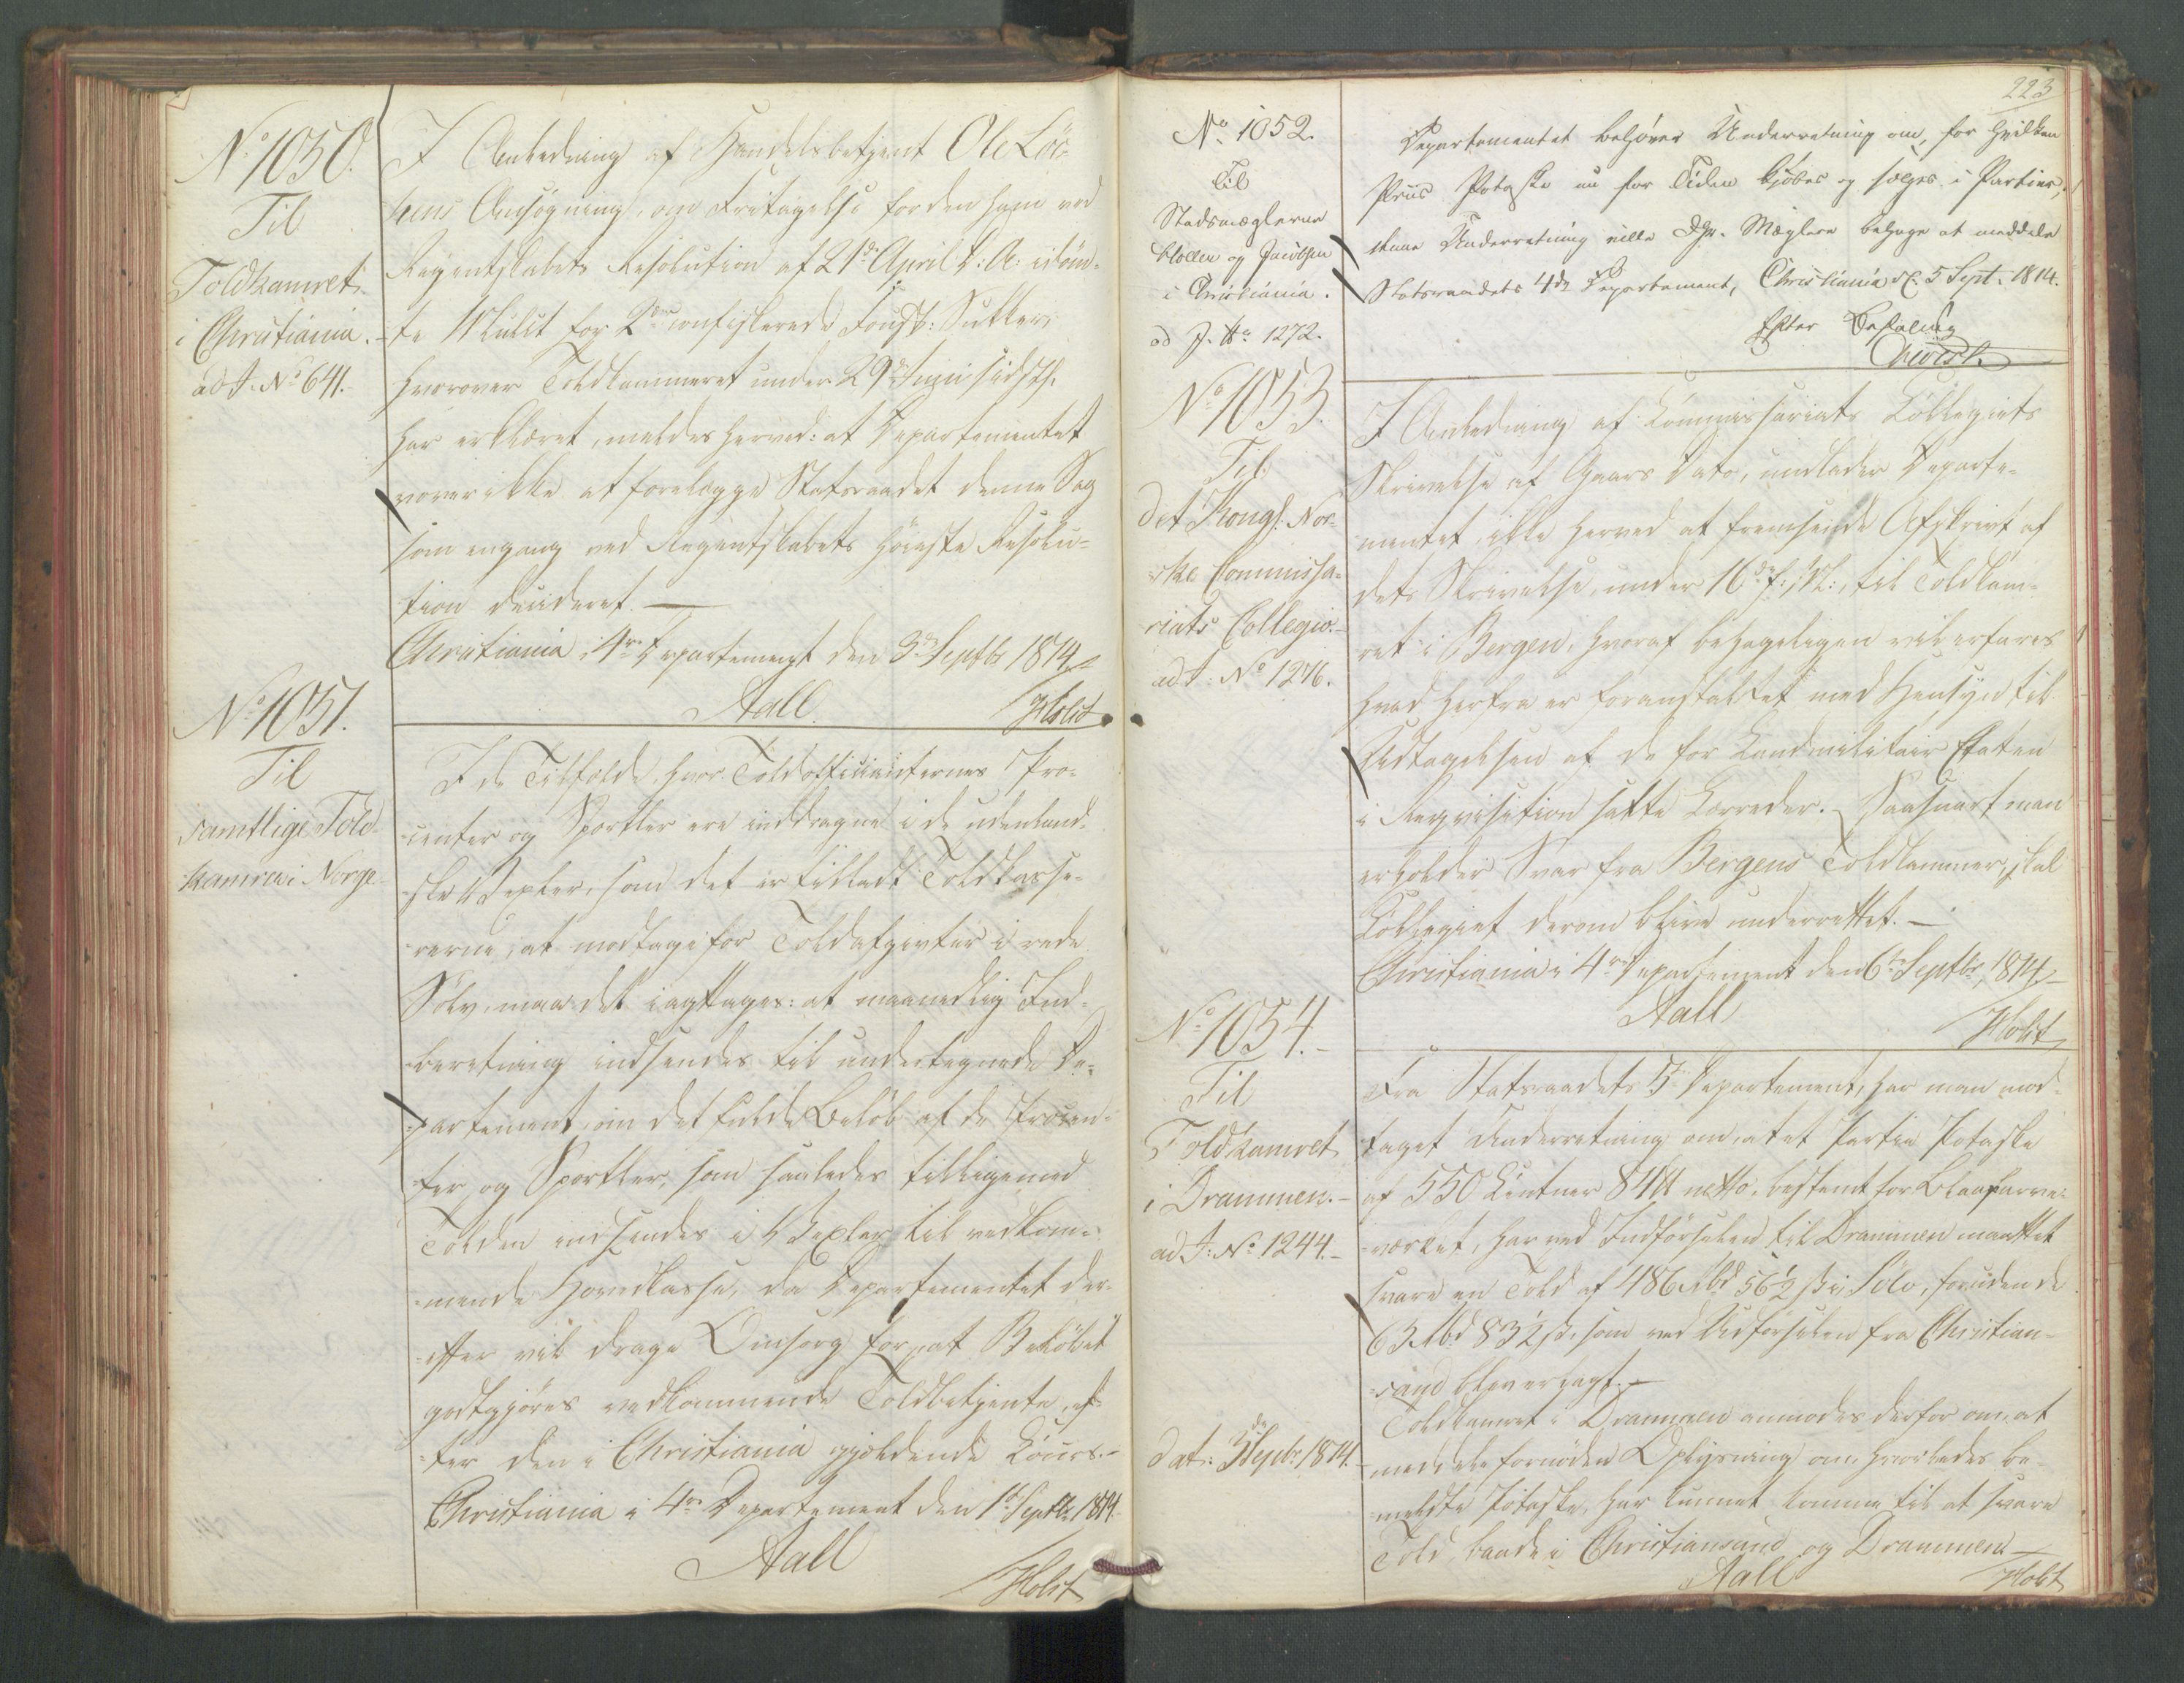 No 1050.
Til
Toldkamret
i Christiania.
ad J. No 641.
I Anledning af Handelsbetjent Ole Löc-
kens Ansøgning, om Fritagelse for den ham ved
Regentskabets Resolution af 21de April d: A: idöm-
te Mulct for 2de confiskerede Sukker,
hvorover Toldkammeret under 29de Junii sidstl.
har erklæret, meldes herved: at Departementet
vover ikke at forelægge Statsraadet denne Sag
som engang ved Regentskabets höieste Resolu-
tion decideret. —
Christiania i 4de Departement den 3de Septbr 1814
Aall
Holst
No 1051.
Til
samtlige Told-
kamre i Norge
I de Tilfælde, hvor Toldofficianternes Pro-
center og Sportler ere inddragne i de udenland-
ske Vexler, som det er tilladt Toldkasse-
rerne, at modtage for Toldafgivter i rede
Sölv, maa det iagttages: at maanedlig Ind-
beretning indsendes til undertegnede De-
partement, om det fulde Belöb af de Procen-
ter og Sportler, som saaledes tilligemed
Tolden indsendes i Vexler til vedkom-
mende Hovedkasse, da Departementet der-
efter vil drage Omsorg for, at Belöbet
godtgjöres vedkommende Toldbetjente, ef-
ter den i Christiania gjældende Cours. -
Christiania i 4de Departement den 1ste Septbr 1814
Aall
Holst
223
No 1052.
Til
Stadsmæglerne
Møller og Jacobsen
i Christiania.
ad J. No 1272.
Departementet behöver Underretning om, for hvilken
Priis Potaske nu for Tiden kjöbes og sælges i Partier,
denne Underretning ville Hr. Mæglere behage at meddele
Statsraadets 4de Departement, Christiania d. 5 Sept. 1814.
Efter Befaling
No 1053.
Til
det Kongl. Nor-
ske Commissa-
riats Collegio. -
ad J: No 1276.
I Anledning af Commissariats Collegiets
Skrivelse af Gaars Dato, undlader Departe-
mentet ikke herved at fremsende Afskrivt af
dets Skrivelse, under 16de f: M:, til Toldkam-
ret i Bergen, hvoraf behageligen vil erfares
hvad herfra er foranstaltet med Hensyn til
Udtagelsen af de for Landmilitair Etaten
i Requisition satte Lærreder. Saasnart man
erholder Svar fra Bergens Toldkammer, skal
Collegiet derom blive underrettet. —
Christiania i 4de Departement den 6te Septbr 1814
Aall
Holst
No 1054. -
Til
Toldkamret
i Drammen. -
ad J: No 1244. -
dat: 3de Septbr 1814.
Fra Statsraadets 5te Departement, har man mod-
taget Underretning om, at et Partie Potaske
af 550 Centner 84 ℔ netto, bestemt for Blaafarve-
værket, har ved Indförselen til Drammen maattet
svare en Told af 486 Rbd 56½ s i Sölv, foruden de
65 Rbd 83½ s, som ved Udförselen fra Christian-
sand blev erlagt. —
Toldkamret i Drammen anmodes derfor om at
meddele fornöden Oplysning om, hvorledes be-
meldte Potaske, har kunnet komme til at svare
Told, baade i Christiansand og Drammen —
Aall
Holst